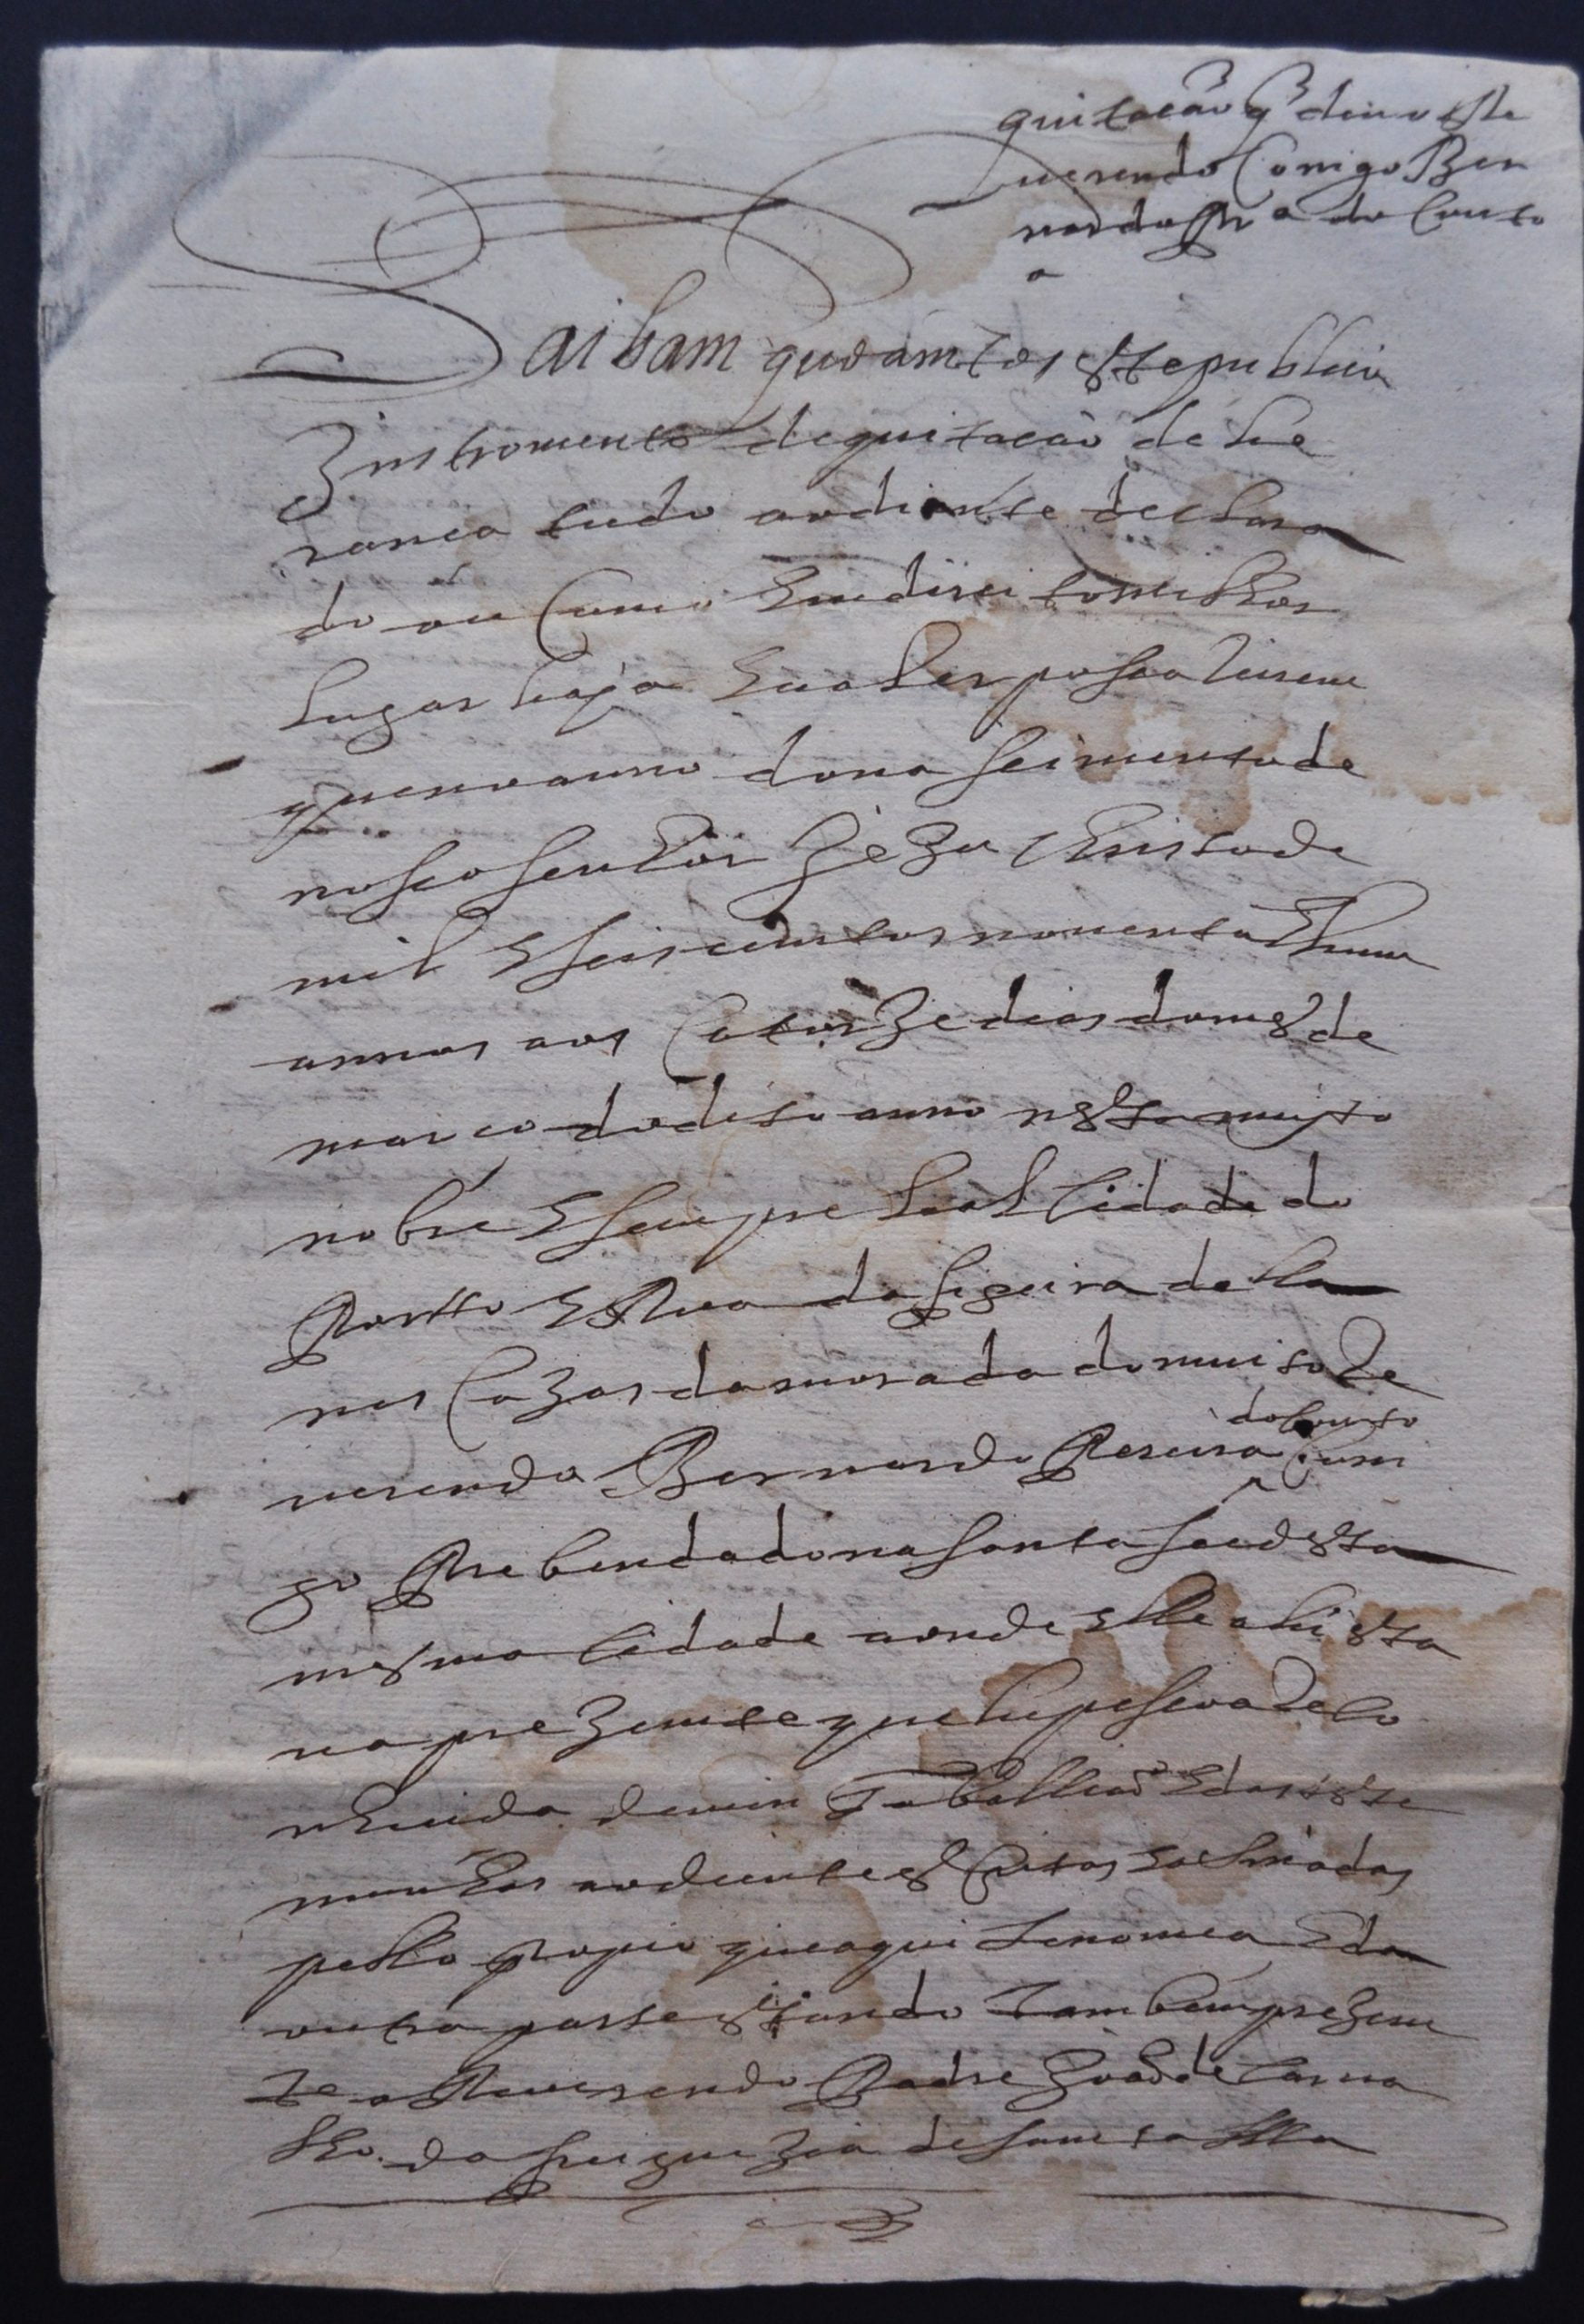 quitacão q̃ deu o Re
uerendo Conigo Ber
nardo Prª do Couto
Saibam quoamtos este publico
Instromento de quitacão de he
ranca tudo aodiante declara
do ou Como em direi to milhor
lugar haja e ualer posaa virem
que no anno do na scimento de
nosco senhor Jezu Christo de
mil e seis centos nouenta e hum
annos aos Catorze dias do mes de
marco do dito anno nesta muyto
nobre e sempre leal Cidade do
Portto e Rua da figeira della
nas Cazas da morada do muito Re
do Couto
uerendo Bernardo Pereira Coni
go Prebendado na santa see desta
mesma Cidade aonde elle ahi esta
ua prezemte que he pesoa Reco
nhecida de mim Taballião e das teste
munhas aodiante es Critas e asinadas
pello propio que aqui se nomea e da
outra parte estando tambem prezem
te o Reuerendo Padre Joaõ de Carua
lho da freiguezia de samta